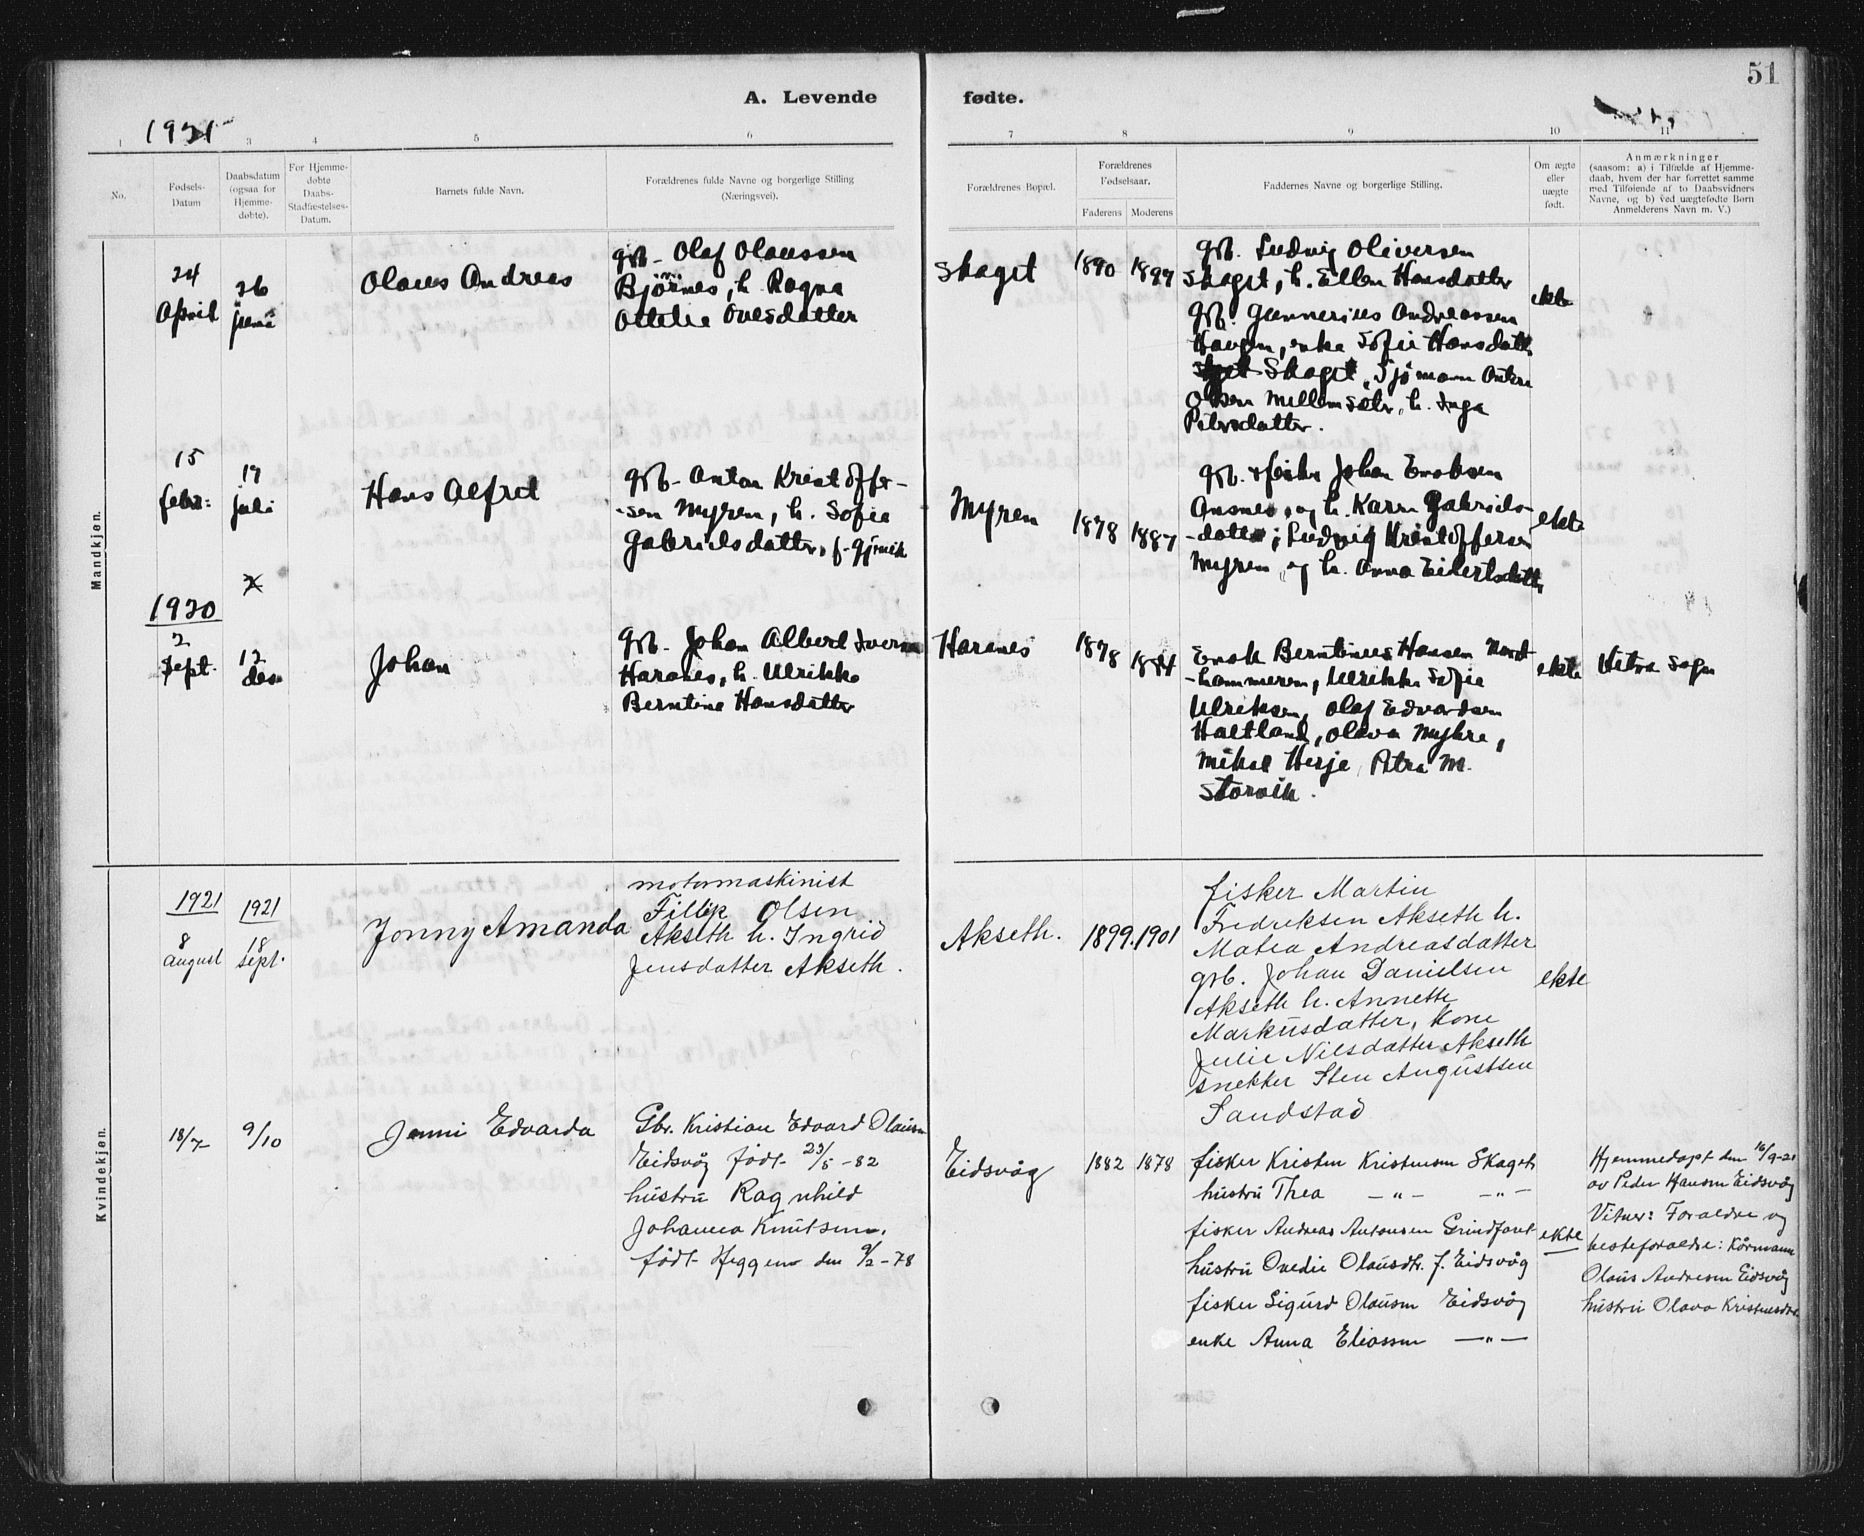 51
A. Levende fødte.
1921
1 3 4 5 6 7 8 9 10 11
No.
Fødsels-
Datum
Daabsdatum
(ogsaa for
Hjemme-
døbte).
For Hjemme-
døbte
Daabs-
Stadfæstelses-
Datum.
Barnets fulde Navn.
Forældrenes fulde Navne og borgerlige Stilling
(Næringsvei).
Forældrenes Bopæl.
Forældrenes
Fødselsaar.
Faderens Moderens
Faddernes Navne og borgerlige Stilling.
Om ægte
eller
uægte
født.
Anmærkninger
(saasom: a) i Tilfælde af Hjemme-
daab, hvem der har forrettet samme
med Tilføiende af to Daabsvidners
Navne, og b) ved uægtefødte Børn
Anmelderens Navn m. V.)
Mandkjøn.
24
April
26
juni
Olaus Andreas
gb. Olaf Olaussen
Bjørnes, h. Ragna
Ottelie Ovesdatter
Skaget
1890 1897
gb. Ludvig Oliversen
Skaget, h. Ellen Hansdatter
gb. Gunnerius Andreassen
Haugen, enke Sofie Hansdatt
Skaget, Sjømann
Olsen Mellemsætr, h. Inga
Petersdatter.
ekte
15
febr:
17
juli
Hans Alfred
gb. Anton Kristoffer-
-sen Myren, h. Sofie
Gabrielsdatter, f. Gjømik
Myren
1878 1887
gb. & fisker Johan Enoksen
Ansnes, og h. Karen Gabriels-
-datter; Ludvig Kristoffersen
Myren, og h. Anna Eilertsdatter
ekte
1920
2
sept.
12
des
Johan
gb. Johan Albert Iversen
Haranes, h. Ulrikke
Berntine Hansdatter
Haranes
1878 1884
Enok Berntinus Hansen Nord-
-hammeren, Ulrikke Sofie
Ulriksen, Olaf Edvardsen
Haltland, Olava Myhre,
Mikal Herje, Petra M.
Storvik.
ekte
Vitra Sogn
Kvindekjøn.
1921
8
august
1921
18
sept.
Jonny Amanda
motormaskinist
Fillip Olsen
Akseth h. Ingrid
Jensdatter Akseth.
Akseth.
1899. 1901
fisker Martin
Fredriksen Akseth h.
Matea Andreasdatter
gb. Johan Danielsen
Akseth h. Annette
Markusdatter, Kone
Julie Nilsdatter Akseth
snekker Sten Augustsen
Sandstad
ekte
18/7
9/10
Jenni Edvarda
Gbr. Kristian Edvard Olausen
Eidsvåg født 23/5-82
hustru Ragnhild
Johanna Knutsen.
født Heggem den 9/2-78
Eidsvåg
1882 1878
fisker Kristen Kristensen Skaget
hustru Thea —"— —"—
fisker Andreas Antonsen Grindfaret
hustru Ovedie Olausdtr. f. Eidsvåg
fisker Sigurd Olausen Eidsvåg
enke Anna Eliassen —"—
ekte
Hjemmedøpt den 16/9-21
av Peder Hansen Eidsvåg
Vitner: Foraldre og
besteforaldre: Kårmann
Olaus Andresen Eidsvåg
hustru Olava Kristensdtr.